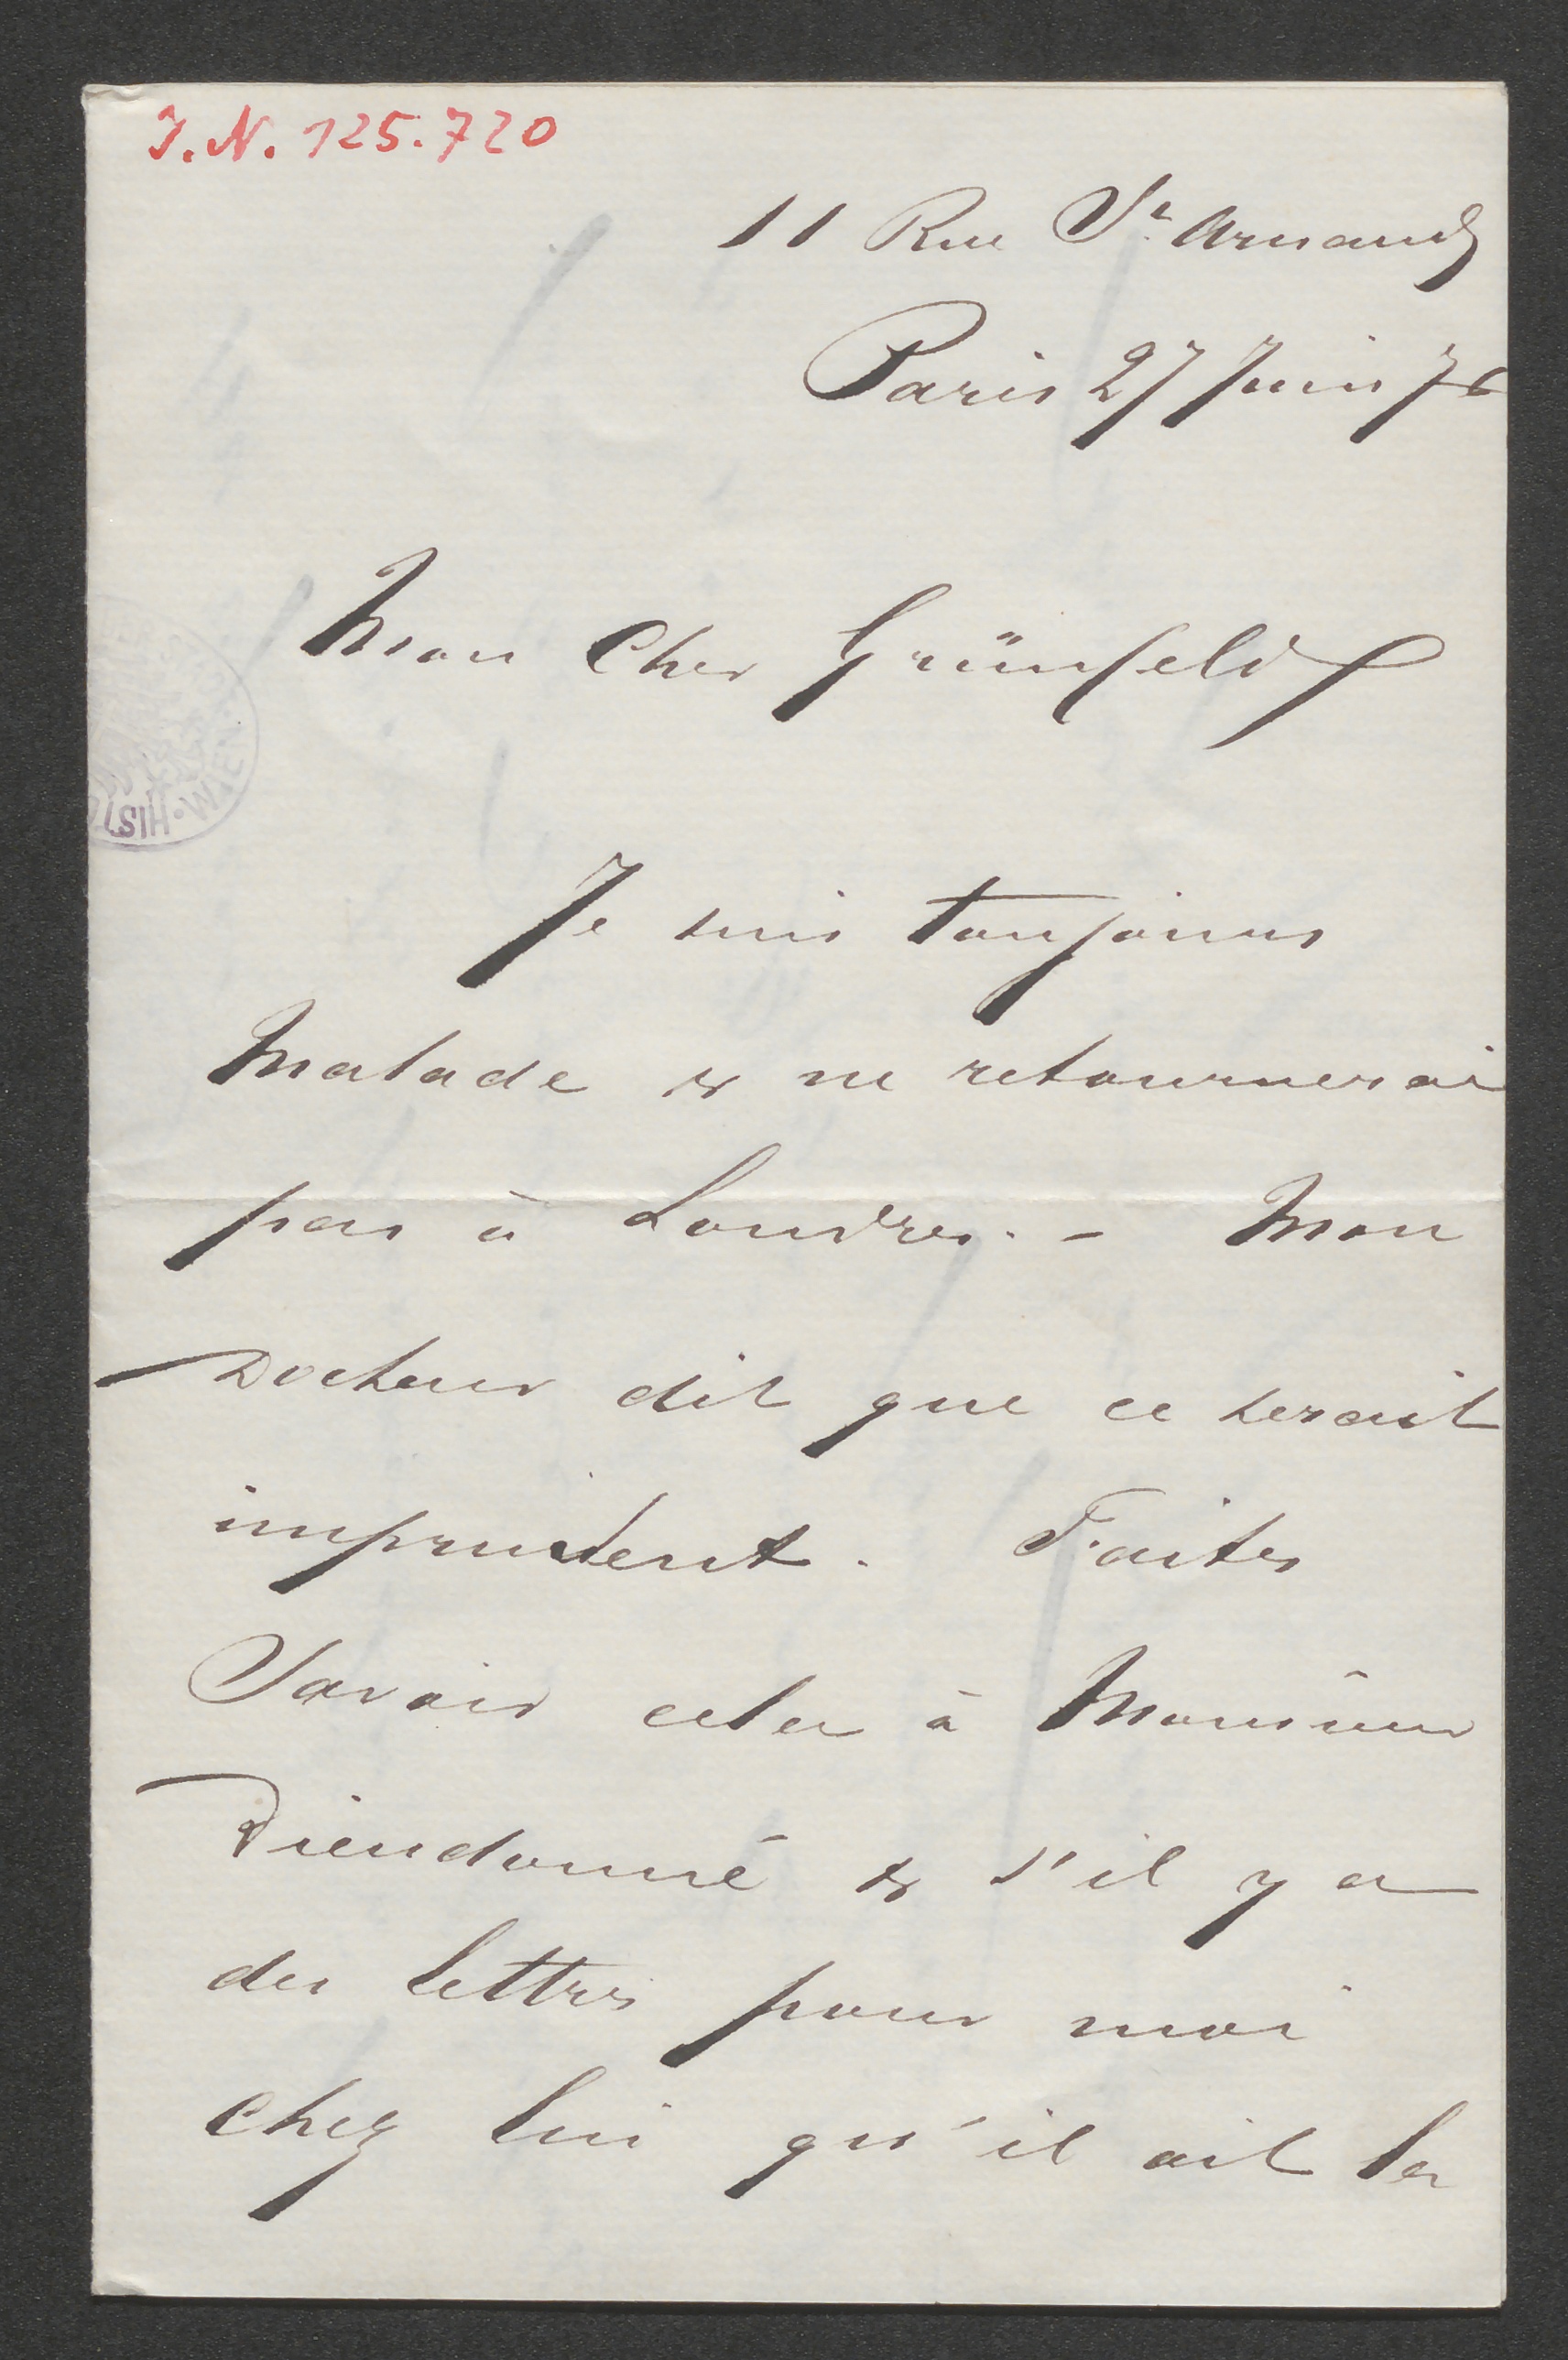 J. N. 125.720
11 Rue St. Arnaud
Paris 27 Juin 76
Mon Cher Grünfeld
Je suis toujours
Malade & ne retournerai
pas à Londres. - Mon
Docteur dit que ce serait
imprudent. Faites
Savoir cela à Monsieur
Dieudonné & s'il y a
des lettres pour moi
Chez lui qu'il ait la
HIST WIEN